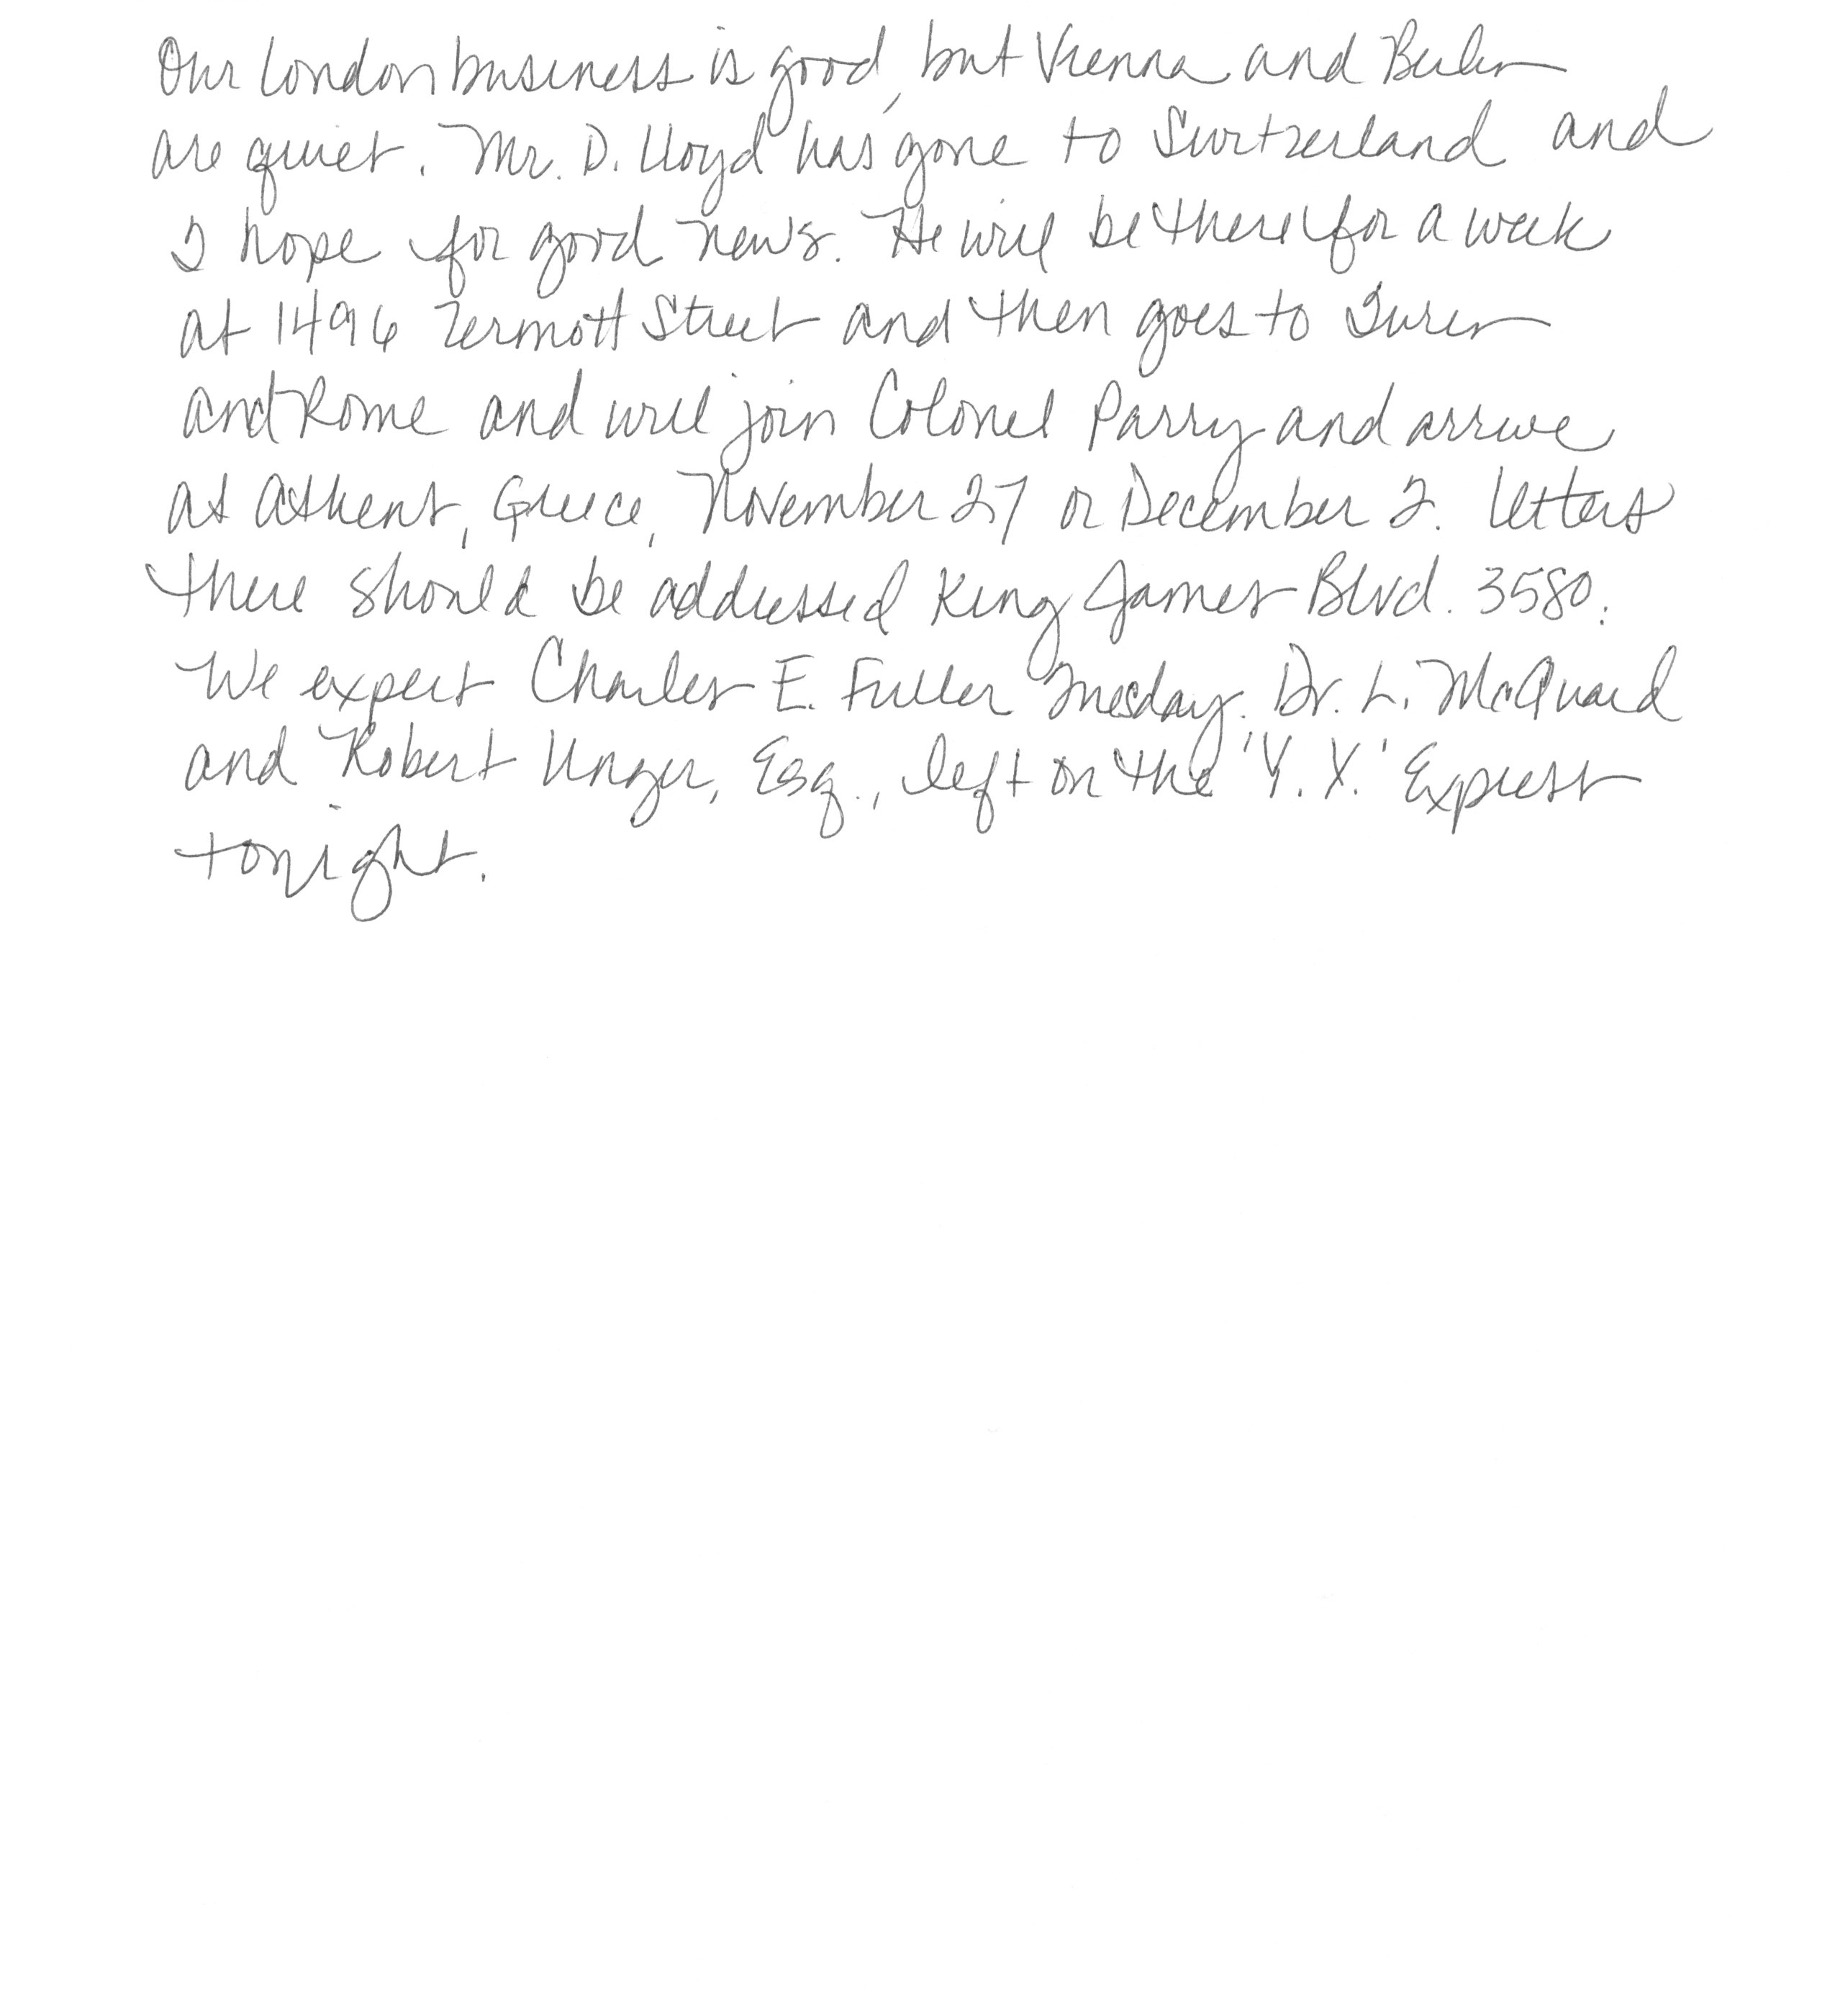 Our London business is good, but Vienna and Berlin
are quiet. Mr. D. Lloyd has gone to Switzerland and
I hope for good news. He will be there for a week
at 1496 Zermott Street and then goes to Turin
and Rome and will join Colonel Parry and arrive
at Athens, Greece, November 27 or December 2. Letters
there should be addressed King James Blvd. 3580.
We expect Charles E. Fuller Tuesday. Dr. L. McQuaid
and Robert Unger, Esq., left on the 'Y. X.' Express
tonight.